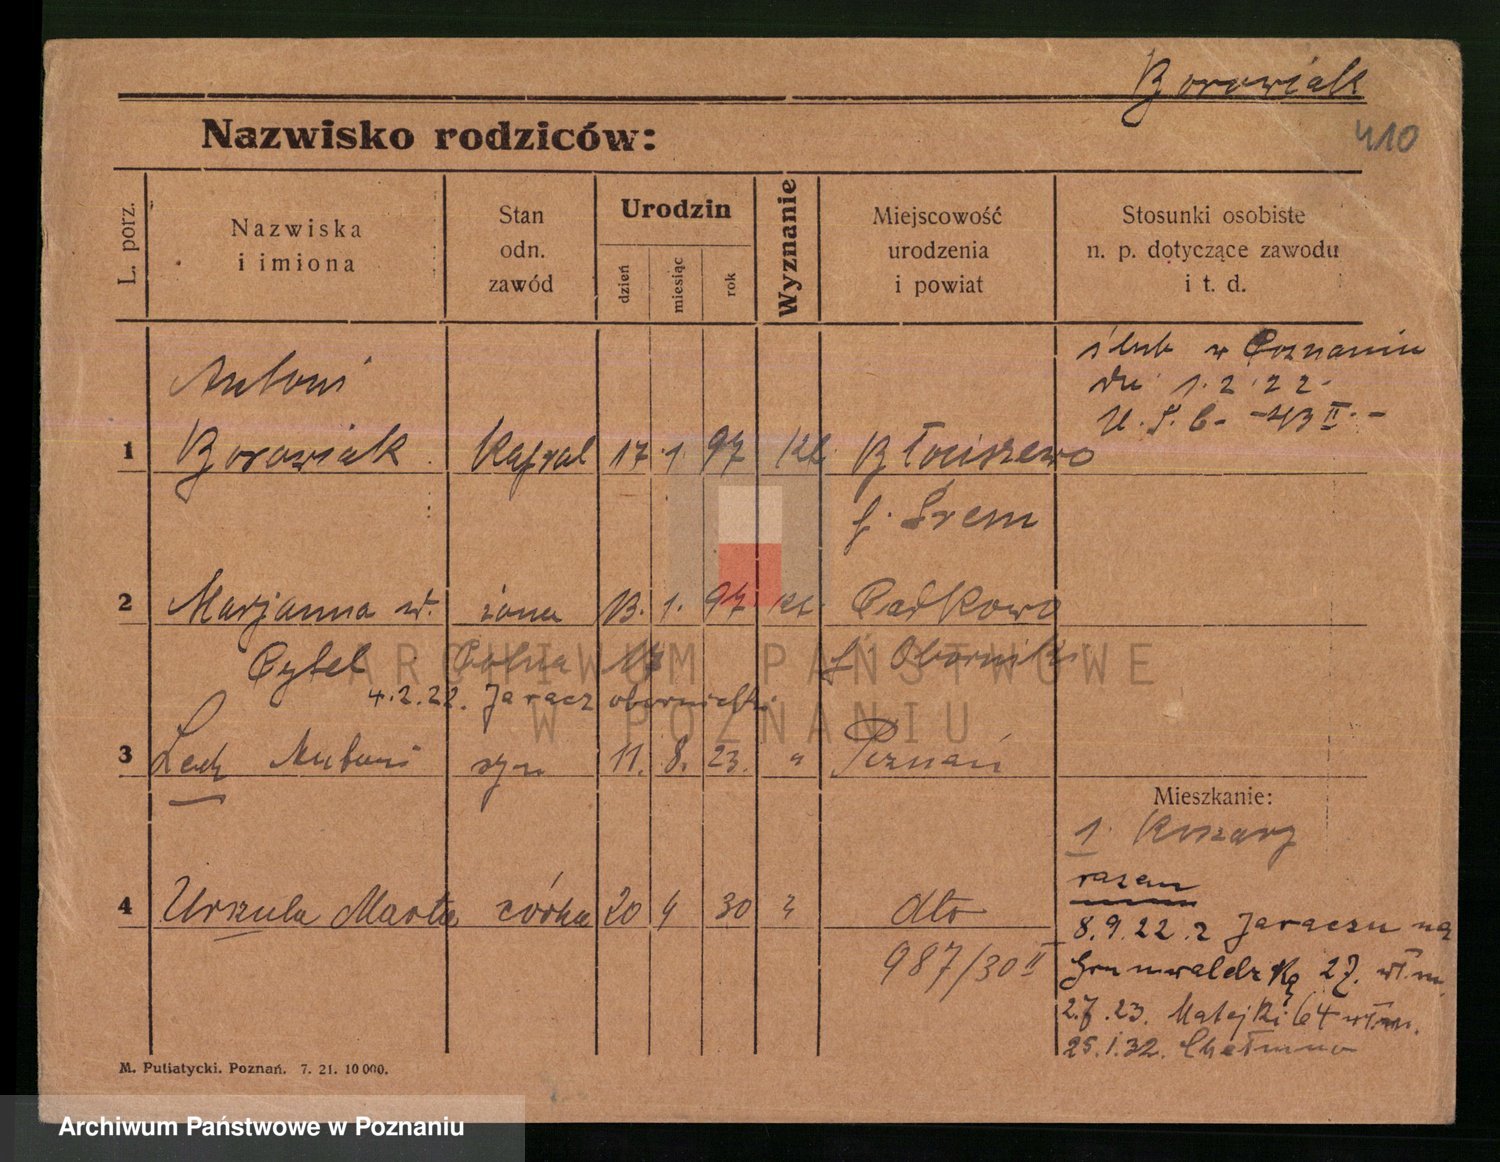 Borowiak
410
Nazwisko rodziców:
L. porz.
Nazwiska
i imiona
Stan
odn.
zawód
Urodzin
dzień
miesiąc
rok
Wyznanie
Miejscowość
urodzenia
i powiat
Stosunki osobiste
n. p. dotyczące zawodu
i t. d.
ślub w Poznaniu
dn. 1.2.22-
U.S.C. -43 II.-
Antoni
1 Borowiak Kapral 17.1.97 Kt. Błociszewo
p. Śrem
2 Marjanna w. żona 13.1.97 kt. Pałkowo
Cytel Polna 17 p. Oborniki
4.2.22. Jaracz obornicki
3 Lech Antoni syn 11. 8. 23. " Poznań
Mieszkanie:
1. Koszary
razem
4 Urszula Marta córka 20 4 30 " dto
987/30 II
8.9.22. z Jaraczu na
Grunwaldzką 27. wł.m.
2.7.23. Matejki 64 wł.m.
25.1.32. Chełmno
M. Putiatycki. Poznań. 7. 21. 10000.
ARCHIWUM PAŃSTWOWE
W POZNANIU
Archiwum Państwowe w Poznaniu